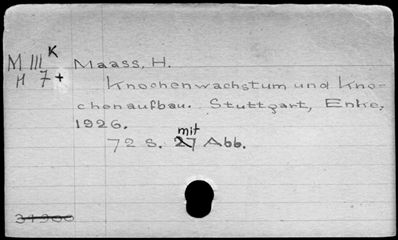 M III K Maass, H.
H 7+ Knochenwachstum und Kno-
chenaufbau. Stuttgart, Enke,
1926.
72 S. mit 27 Abb.
31900